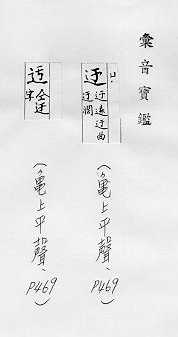 彙音寶鑑
迂 迂遠迂曲
迂闊
(龜上平聲、P469)
迃 仝迂
字
(龜上平聲、P469)